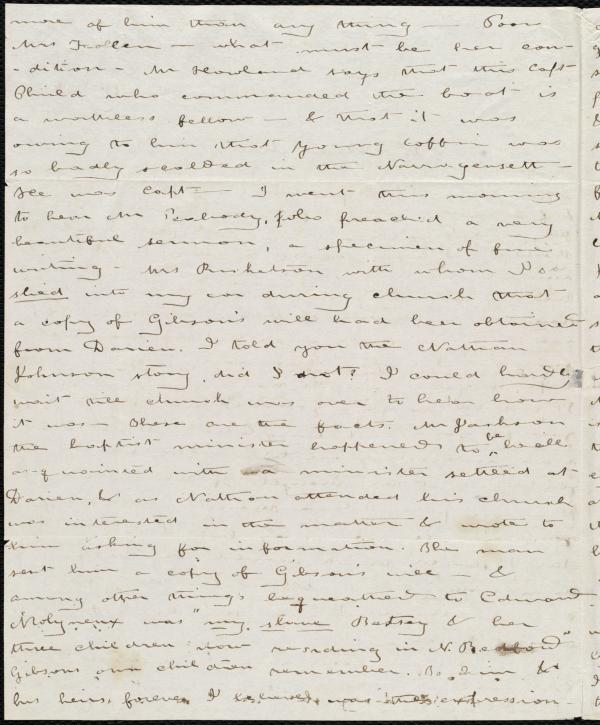 more of him than any thing — Poor
Mrs Follen — what must be her con-
-dition - Mr Howland says that this Capt
Child who commanded the boat is
a worthless fellow — & that it was
owing to him that young Coffin was
so badly scalded in the Narragansett —
He was Capt — I went this morning
to hear Mr Peabody, who preach'd a very
beautiful sermon, a specimen of fine
writing - Mrs Ricketson with whom I
into my ear during church that
a copy of Gibson's will had been obtained
from Darien. I told you the Nathan
Johnson story did I not? I could hardly
wait till church was over to hear how
it was — These are the facts. Mr Jackson
the baptist minister happened to be well
acquainted with a minister settled at
Darien, & as Nathan attended his church
was interested in the matter & wrote to
him asking for information. The man
sent him a copy of Gibson's will — &
among other things bequeathed to Edward
Molyneux was "my slave Betsey & her
three children now residing in N. Bedford"
Gibsons own children remember. To him &
his heirs forever I believe was the expression -